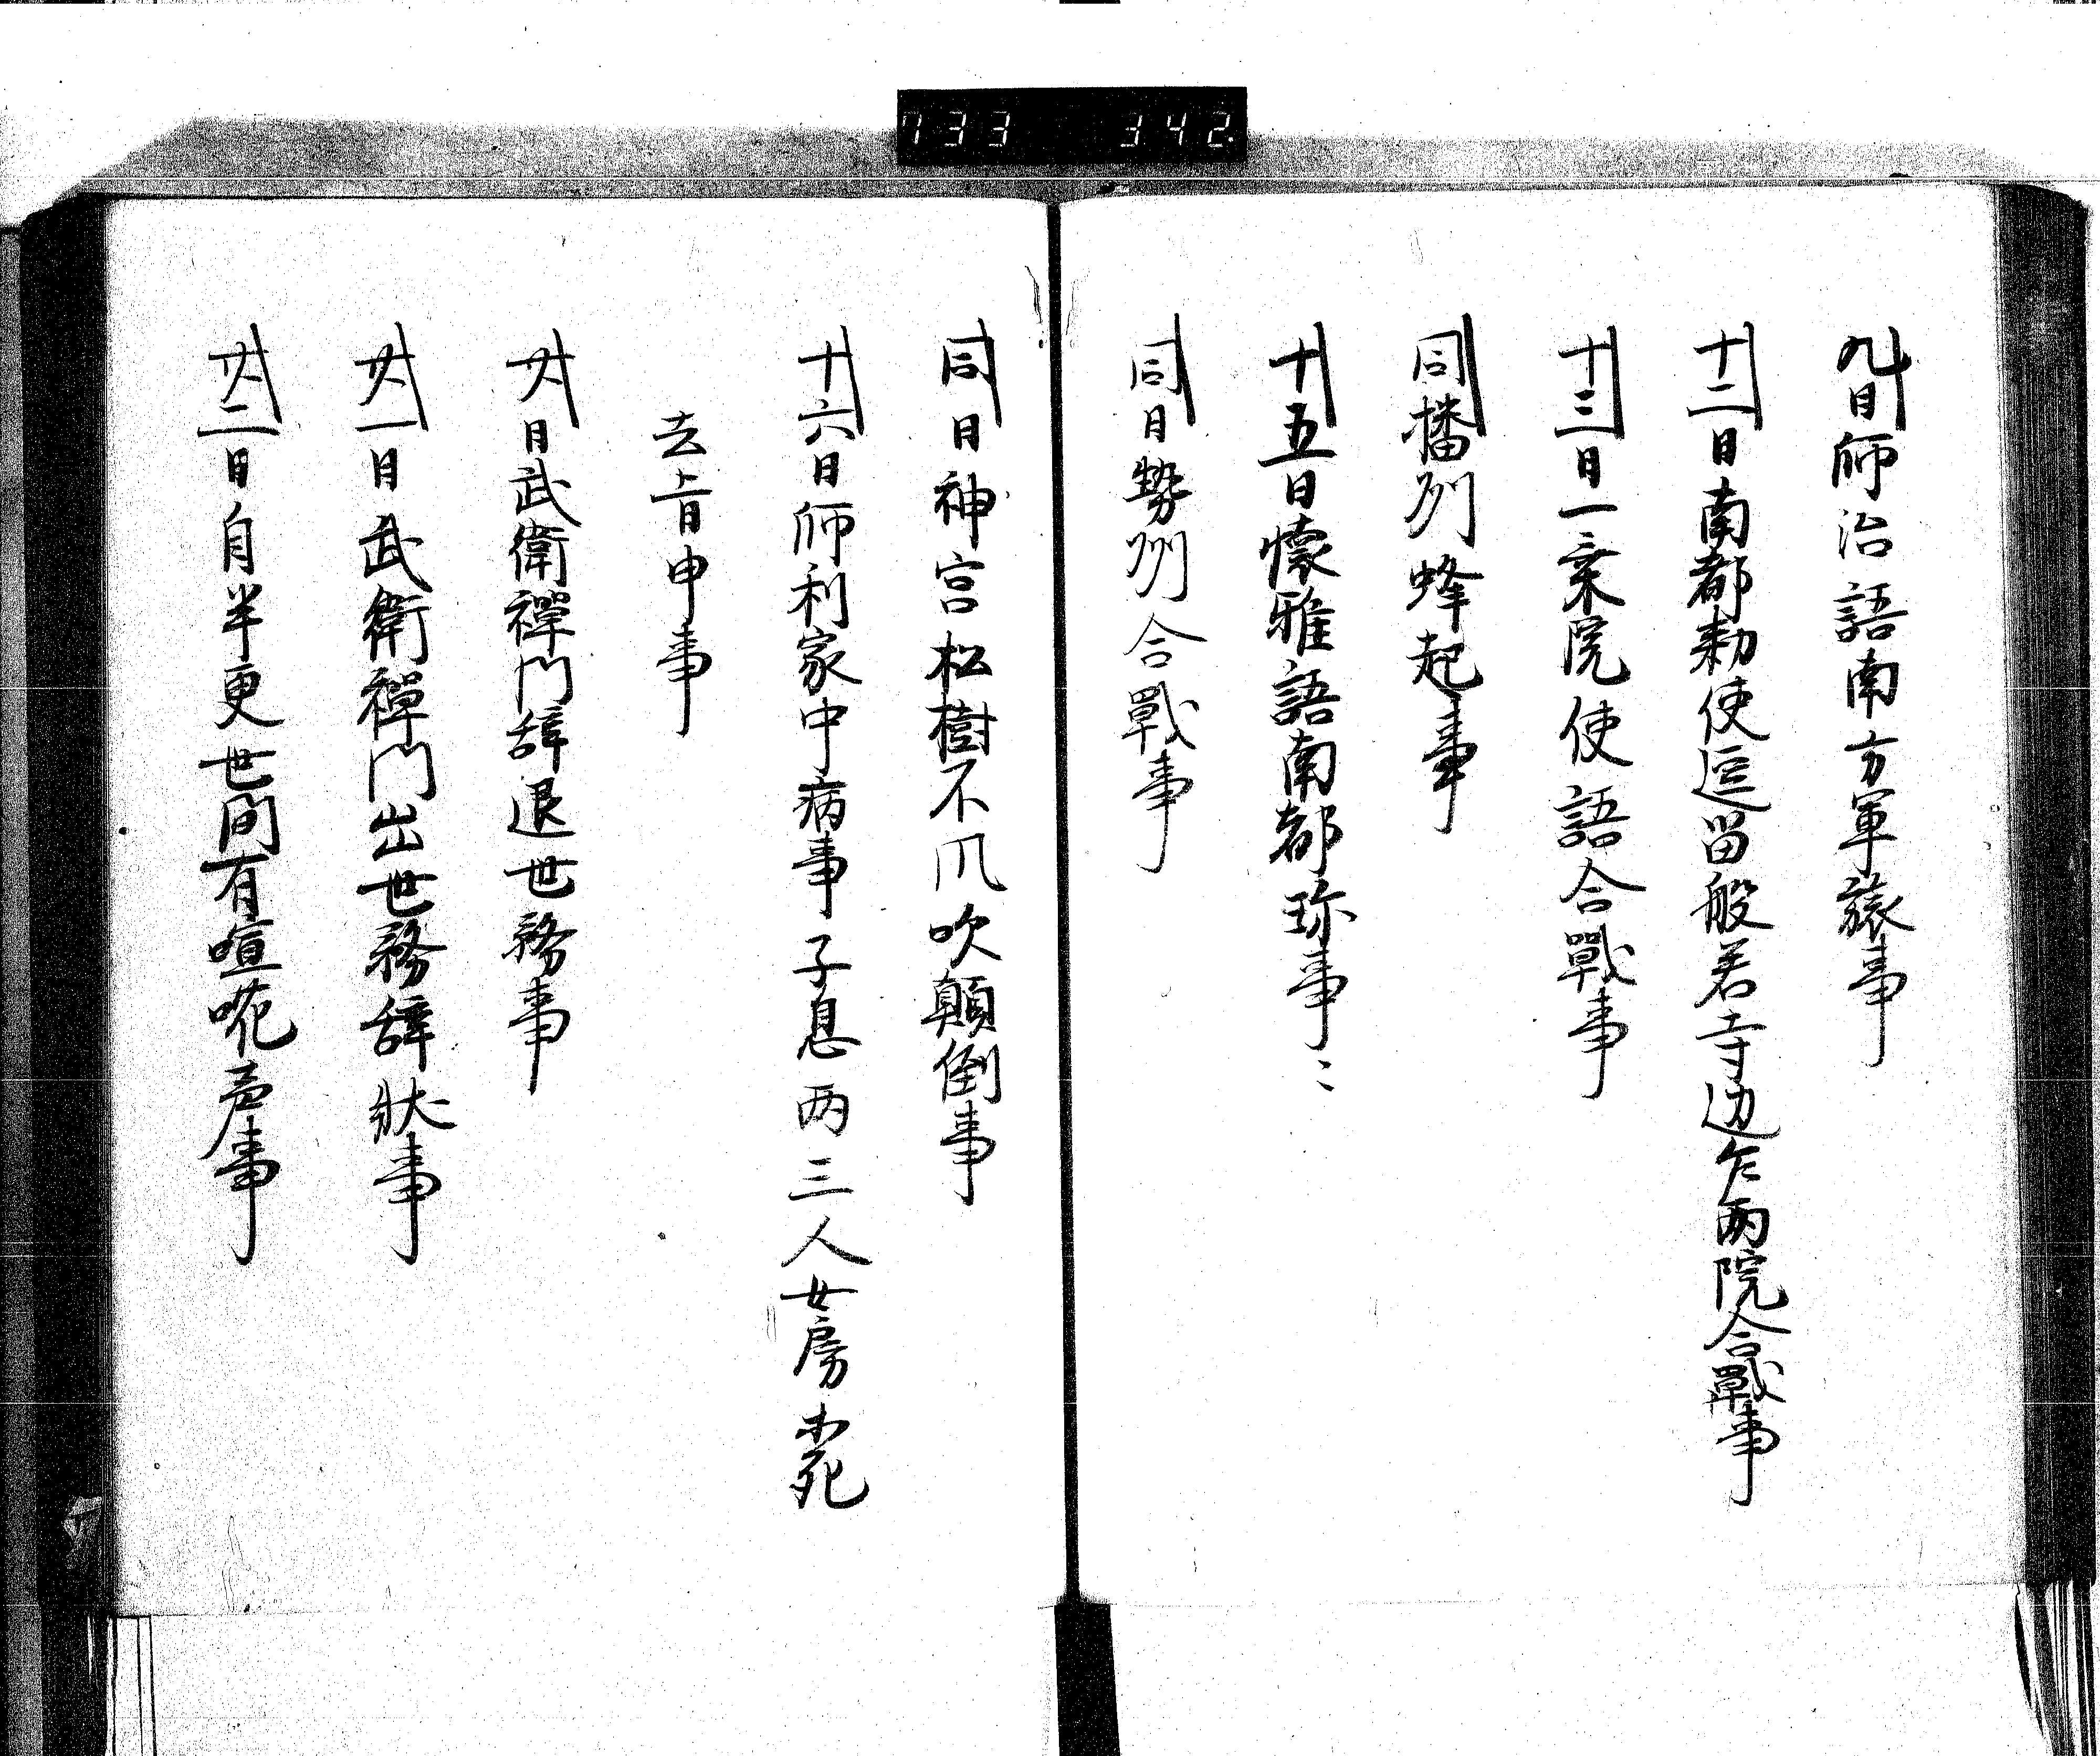 733 342
九日師治語南方軍旅事
十二日南都勅使逗留般若寺辺乍両院合戦事
十三日一乗院使語合戦事
同播州蜂起事
十五日懐雅語南都珎事〻
同日勢州合戦事
同日神宮松樹不風吹顛倒事
十六日師利家中病事子息両三人女房等死
去旨申事
廿日武衛禅門辞退世務事
廿一日武衛禅門出世務辞状事
廿二日自半更世間有喧嘩声事